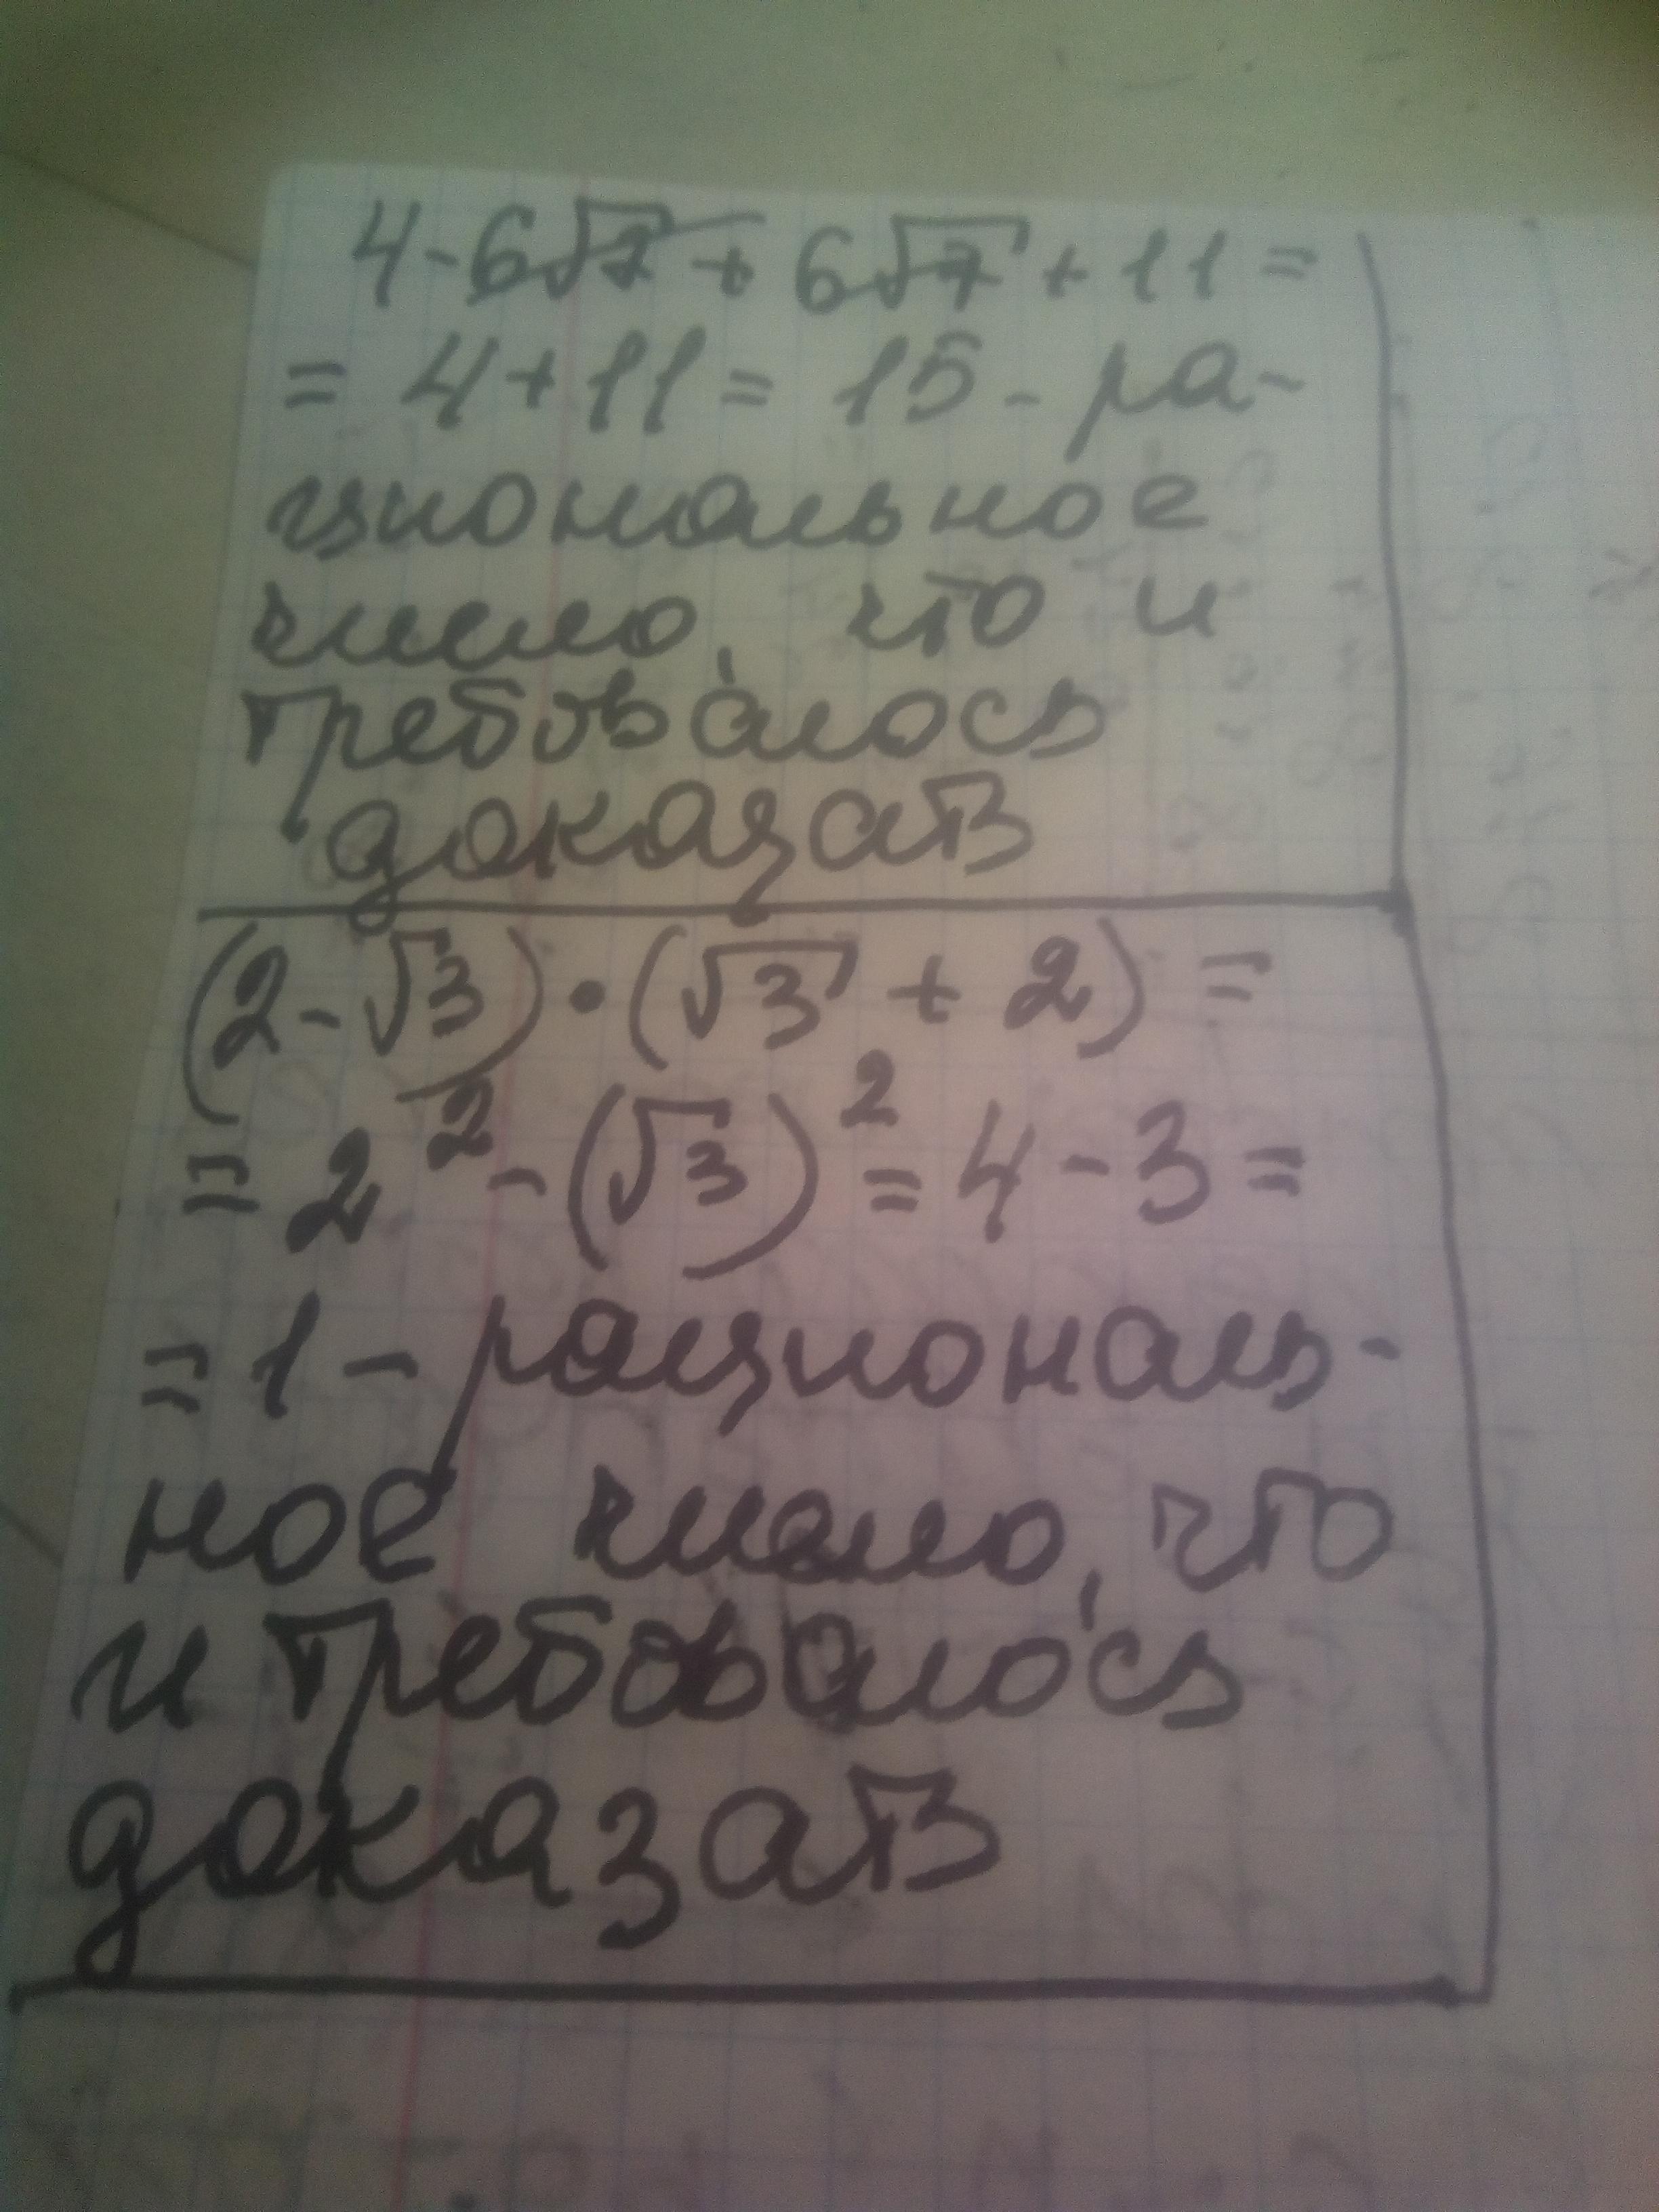 4-6√7+6√7+11=
= 4+11= 15 - ра-
циональное
число, что и
требовалось
доказать
(2-√3)•(√3+2)=
=2²-(√3)²=4-3=
=1-рациональ-
ное число, что
и требовалось
доказать